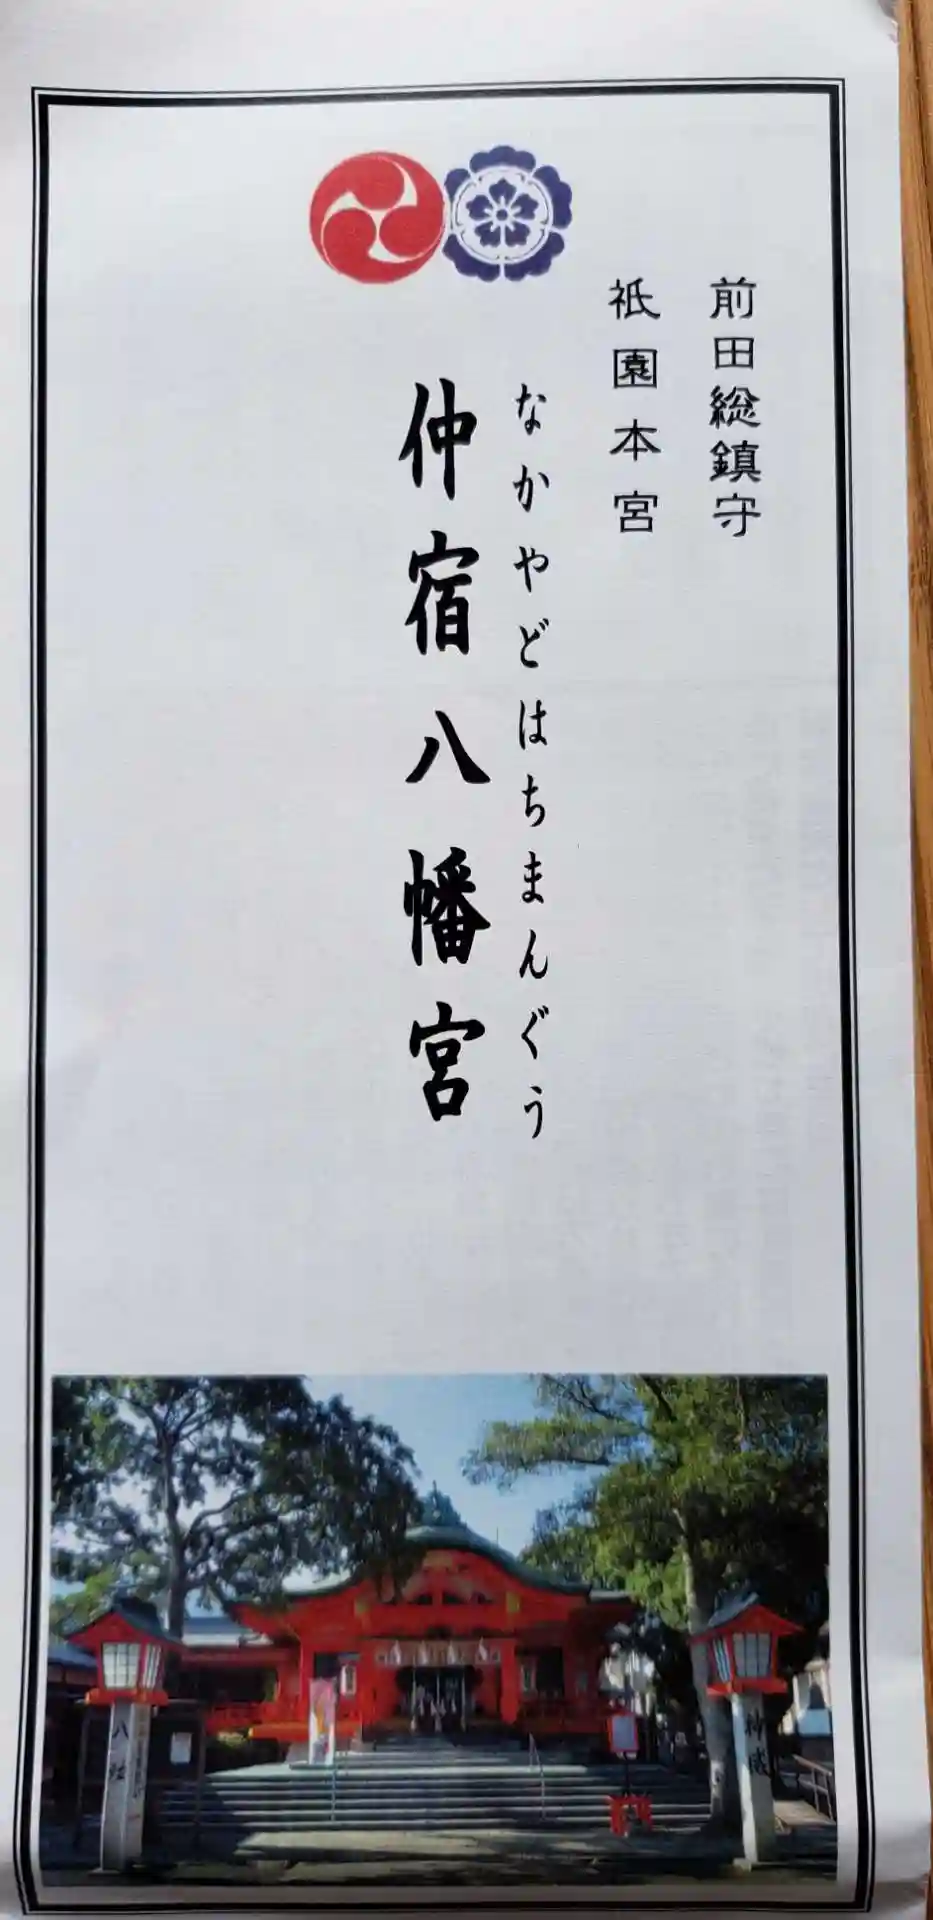 前田総鎮守
祇園本宮
なかやどはちまんぐう
仲宿八幡宮